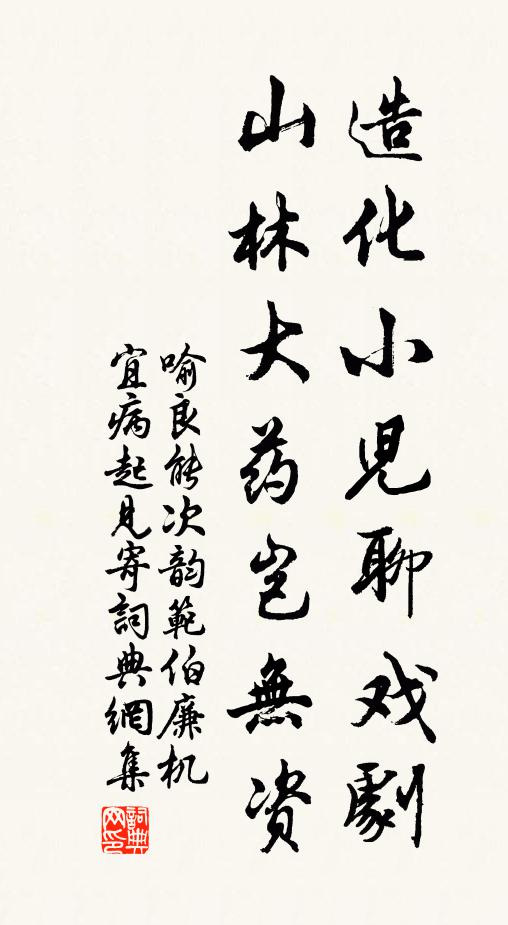 造化小児聊戏劇
山林大药岂無资
喻良能次韵範伯廉机
宜病起見寄詞典網集
詞典
网印